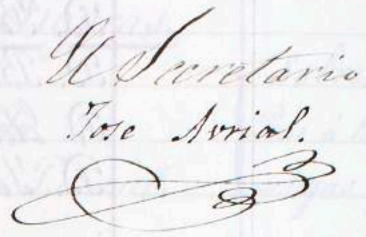 El Secretario
Jose Avrial.